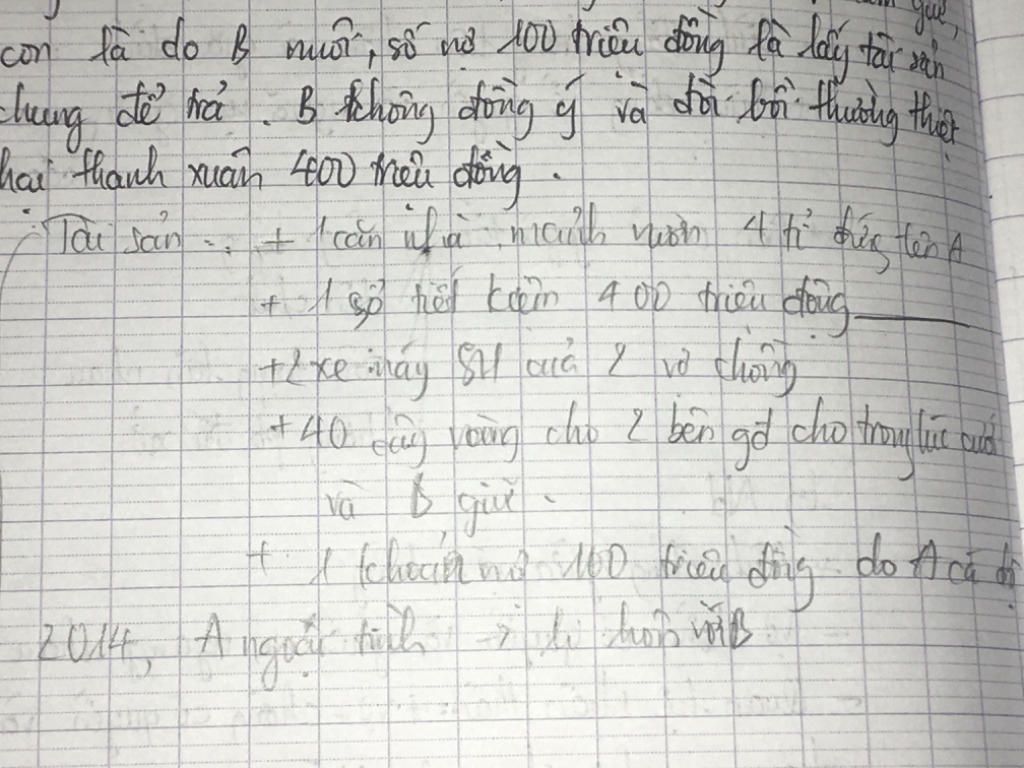 quê,
con là do B nuôi, số nợ 100 triệu đồng là lấy tài sản
chung để trả. B không đồng ý và đòi bồi thường thiệt
hại thanh xuân 400 triệu đồng.
Tài sản: + 1 căn nhà, mảnh vườn 4 tỉ đứng tên A
+ 1 sổ tiết kiệm 400 triệu đồng
+ 2 xe máy SH của 2 vợ chồng
+ 40 cây vàng cho 2 bên gđ cho trong lúc cưới
và B giữ.
+ 1 khoản nợ 100 triệu đồng do A cá độ
2014, A ngoại tình → li hôn với B